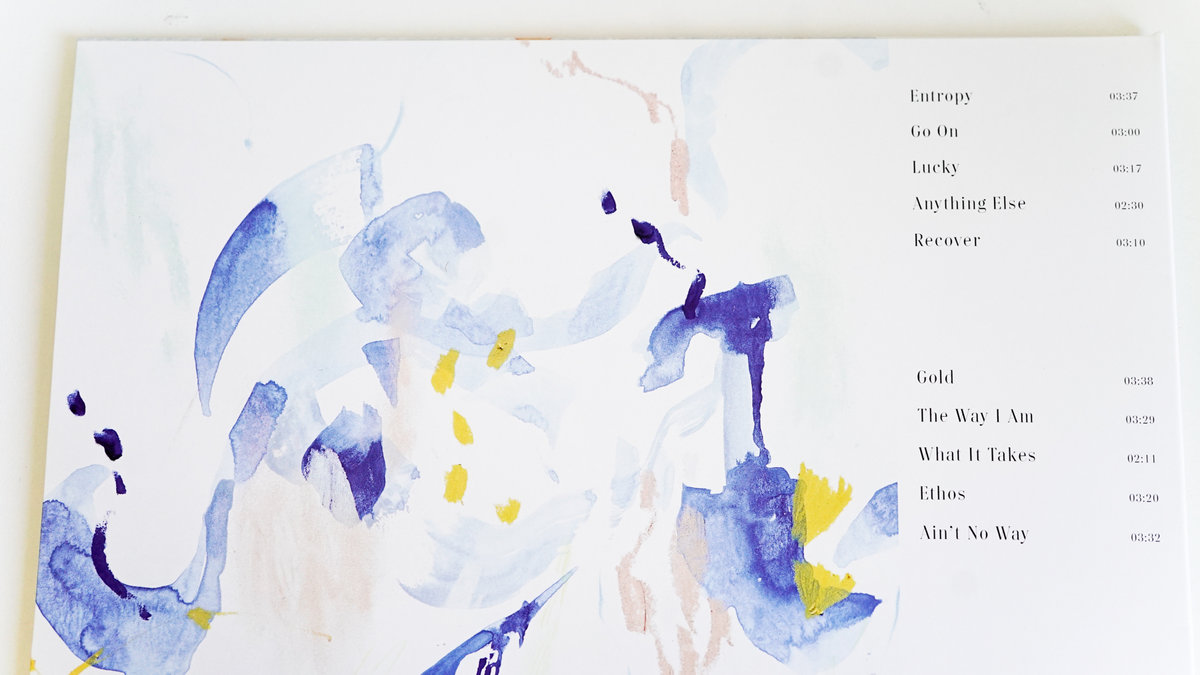 Entropy 03:37
Go On 03:00
Lucky 03:17
Anything Else 02:30
Recover 03:10
Gold 03:38
The Way I Am 03:29
What It Takes 02:11
Ethos 03:20
Ain't No Way 03:32